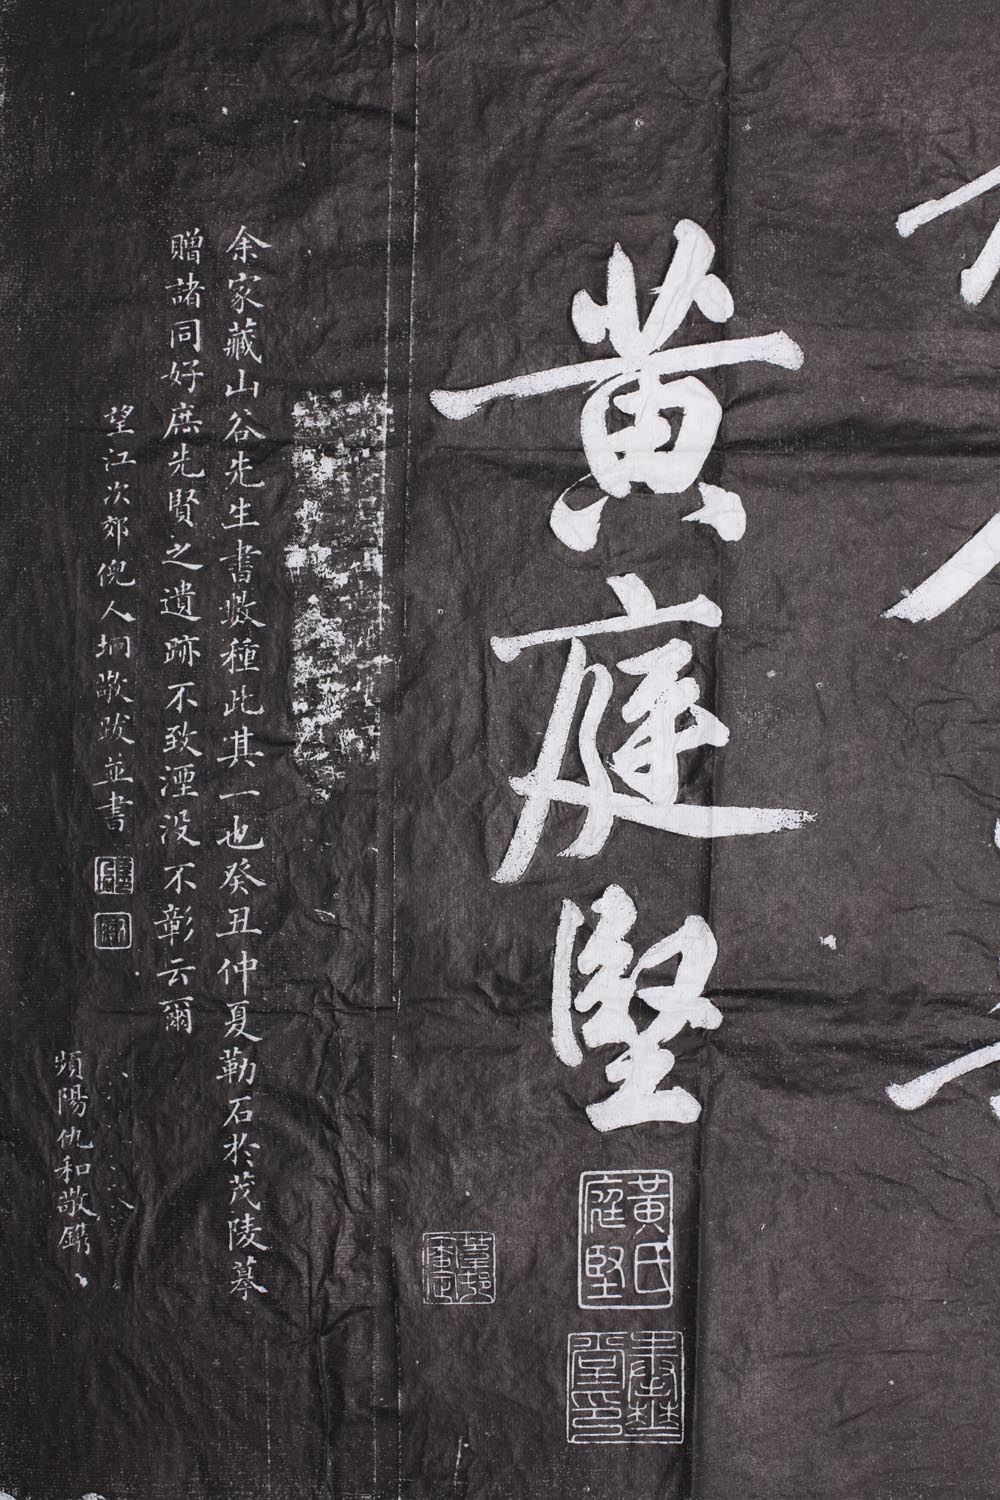 黃庭堅
黃氏庭堅
余家藏山谷先生書數種此其一也癸丑仲夏勒石於茂陵摹
贈諸同好庶先賢之遺跡不致湮没不彰云爾
望江次郊倪人垌敬跋並書
頻陽仇和敬鐫